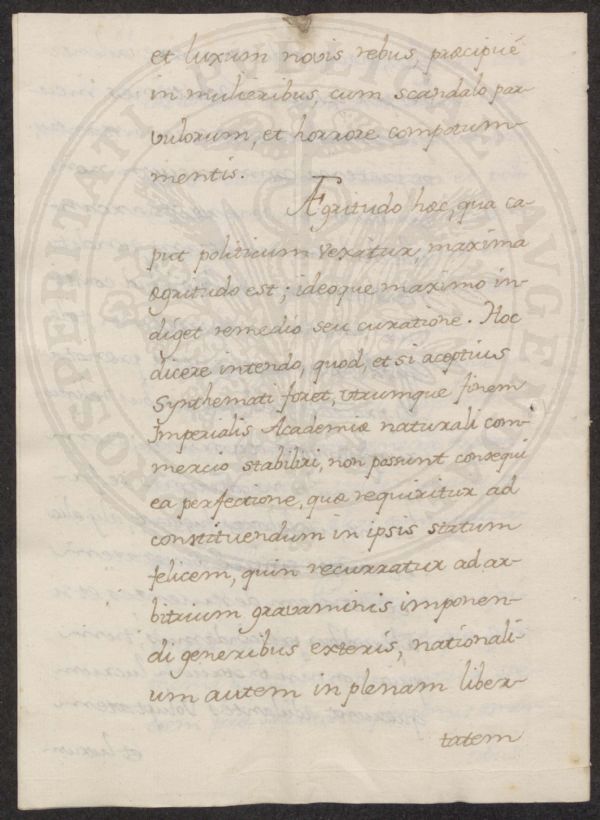 et luxum novis rebus, præcipuè
in mulieribus, cum scandalo par-
vulorum, et horrore compotum-
mentis.
Ægritudo hæc, qua ca-
put politicum vexatur, maxima
ægritudo est; ideoque maximo in-
diget remedio seu curatione. Hoc
dicere intendo, quod, et si aceptius
Synthemati foret, utrumque finem
Imperialis Academiæ naturali com-
mercio stabiliri, non possunt consequi
ea perfectione, quæ requiritur ad
constituendum in ipsis statum
felicem, quin recurratur ad ar-
bitrium gravaminis imponen-
di generibus exteris, nationali-
um autem in plenam liber-
tatem